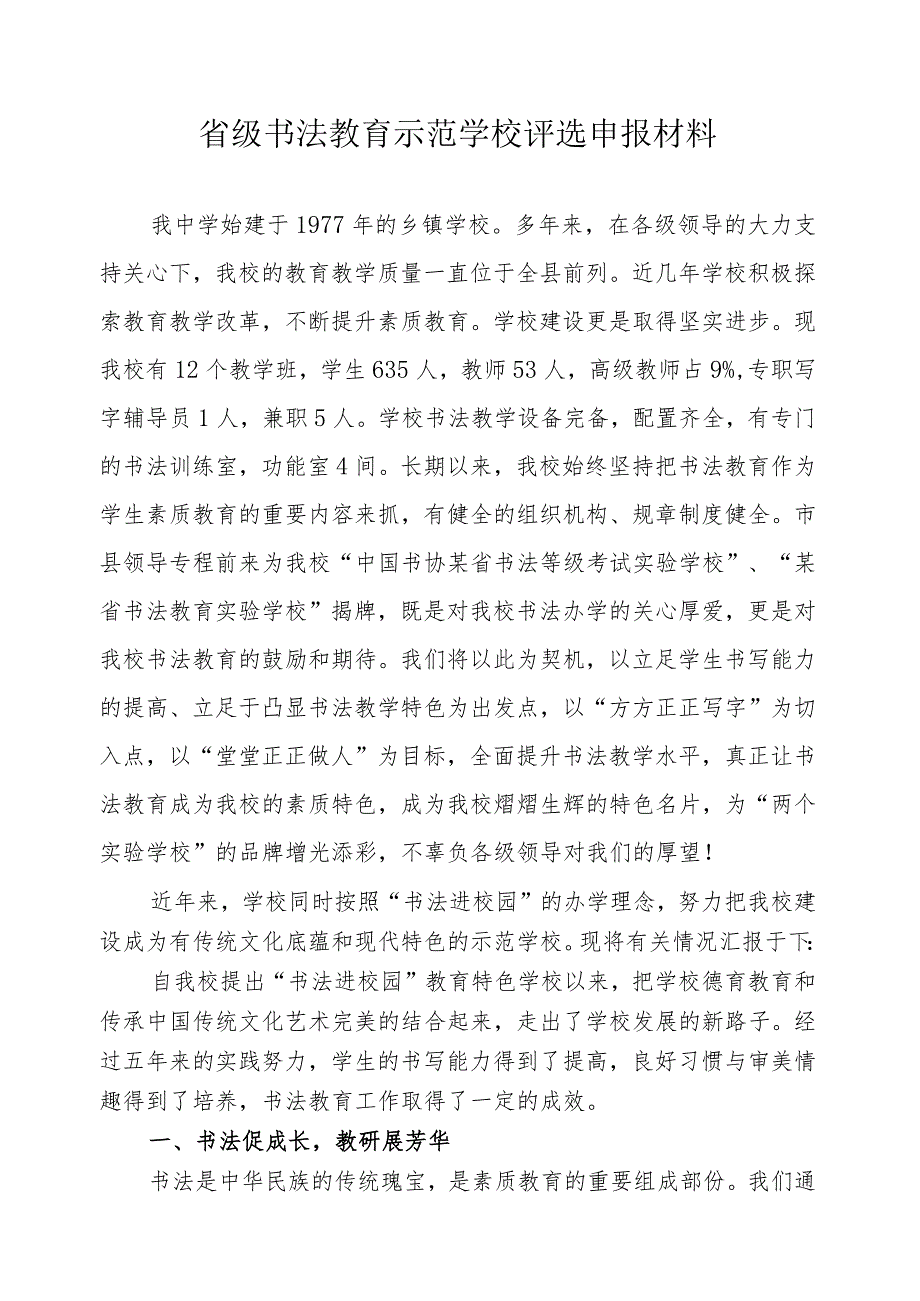 省级书法教育示范学校评选申报材料
我中学始建于 1977 年的乡镇学校。多年来，在各级领导的大力支
持关心下，我校的教育教学质量一直位于全县前列。近几年学校积极探
索教育教学改革，不断提升素质教育。学校建设更是取得坚实进步。现
我校有 12 个教学班，学生 635 人，教师 53 人，高级教师占 9%,专职写
字辅导员 1 人，兼职 5 人。学校书法教学设备完备，配置齐全，有专门
的书法训练室，功能室 4 间。长期以来，我校始终坚持把书法教育作为
学生素质教育的重要内容来抓，有健全的组织机构、规章制度健全。市
县领导专程前来为我校“中国书协某省书法等级考试实验学校”、“某
省书法教育实验学校”揭牌，既是对我校书法办学的关心厚爱，更是对
我校书法教育的鼓励和期待。我们将以此为契机，以立足学生书写能力
的提高、立足于凸显书法教学特色为出发点，以“方方正正写字”为切
入点，以“堂堂正正做人”为目标，全面提升书法教学水平，真正让书
法教育成为我校的素质特色，成为我校熠熠生辉的特色名片，为“两个
实验学校”的品牌增光添彩，不辜负各级领导对我们的厚望！
近年来，学校同时按照“书法进校园”的办学理念，努力把我校建
设成为有传统文化底蕴和现代特色的示范学校。现将有关情况汇报于下：
自我校提出“书法进校园”教育特色学校以来，把学校德育教育和
传承中国传统文化艺术完美的结合起来，走出了学校发展的新路子。经
过五年来的实践努力，学生的书写能力得到了提高，良好习惯与审美情
趣得到了培养，书法教育工作取得了一定的成效。
一、书法促成长，教研展芳华
书法是中华民族的传统瑰宝，是素质教育的重要组成部份。我们通